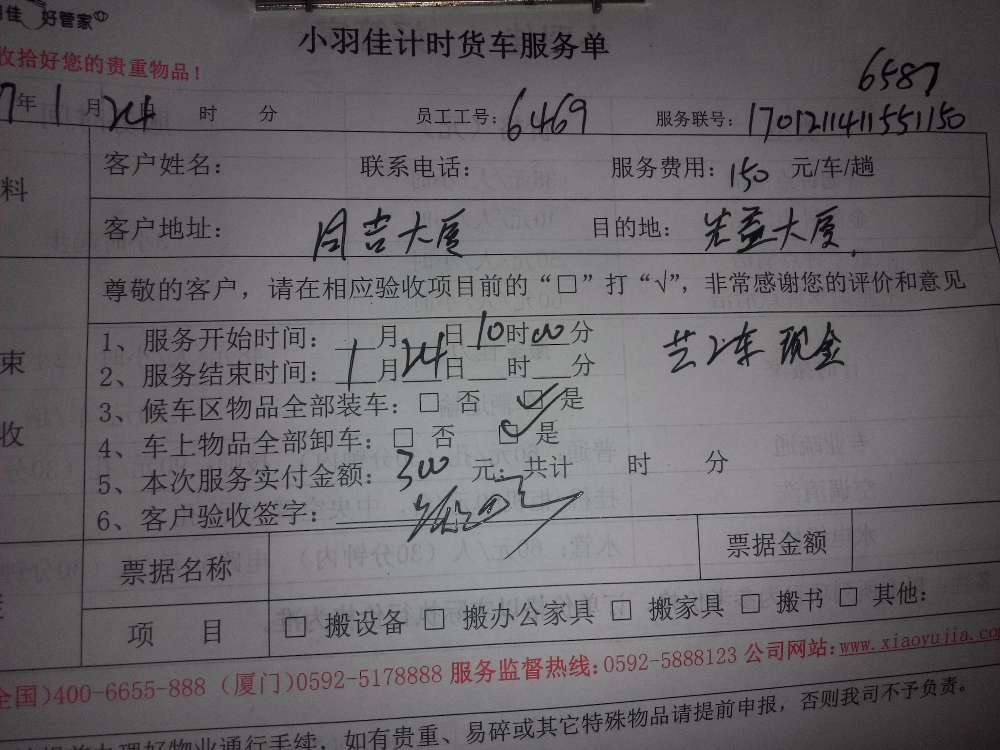 羽佳 好管家
小羽佳计时货车服务单
收拾好您的贵重物品！
6587
7年1月24日 时 分 员工工号：6469 服务联号：1701211411551150
料
客户姓名： 联系电话： 服务费用：150 元/车/趟
客户地址：同吉大厦 目的地：光益大厦
尊敬的客户，请在相应验收项目前的“□”打“√”，非常感谢您的评价和意见
束
收
1、服务开始时间：1月24日10时00分
共2车 现金
2、服务结束时间：1月24日 时 分
3、候车区物品全部装车：□ 否 ☑ 是
4、车上物品全部卸车：□ 否 ☑ 是
5、本次服务实付金额：300 元；共计 时 分
6、客户验收签字：
票据名称 票据金额
项 目 □ 搬设备 □ 搬办公家具 □ 搬家具 □ 搬书 □ 其他：
全国)400-6655-888 (厦门)0592-5178888 服务监督热线：0592-5888123 公司网站：www.xiaoyujia.com
办理好物业通行手续，如有贵重、易碎或其它特殊物品请提前申报，否则我司不予负责。